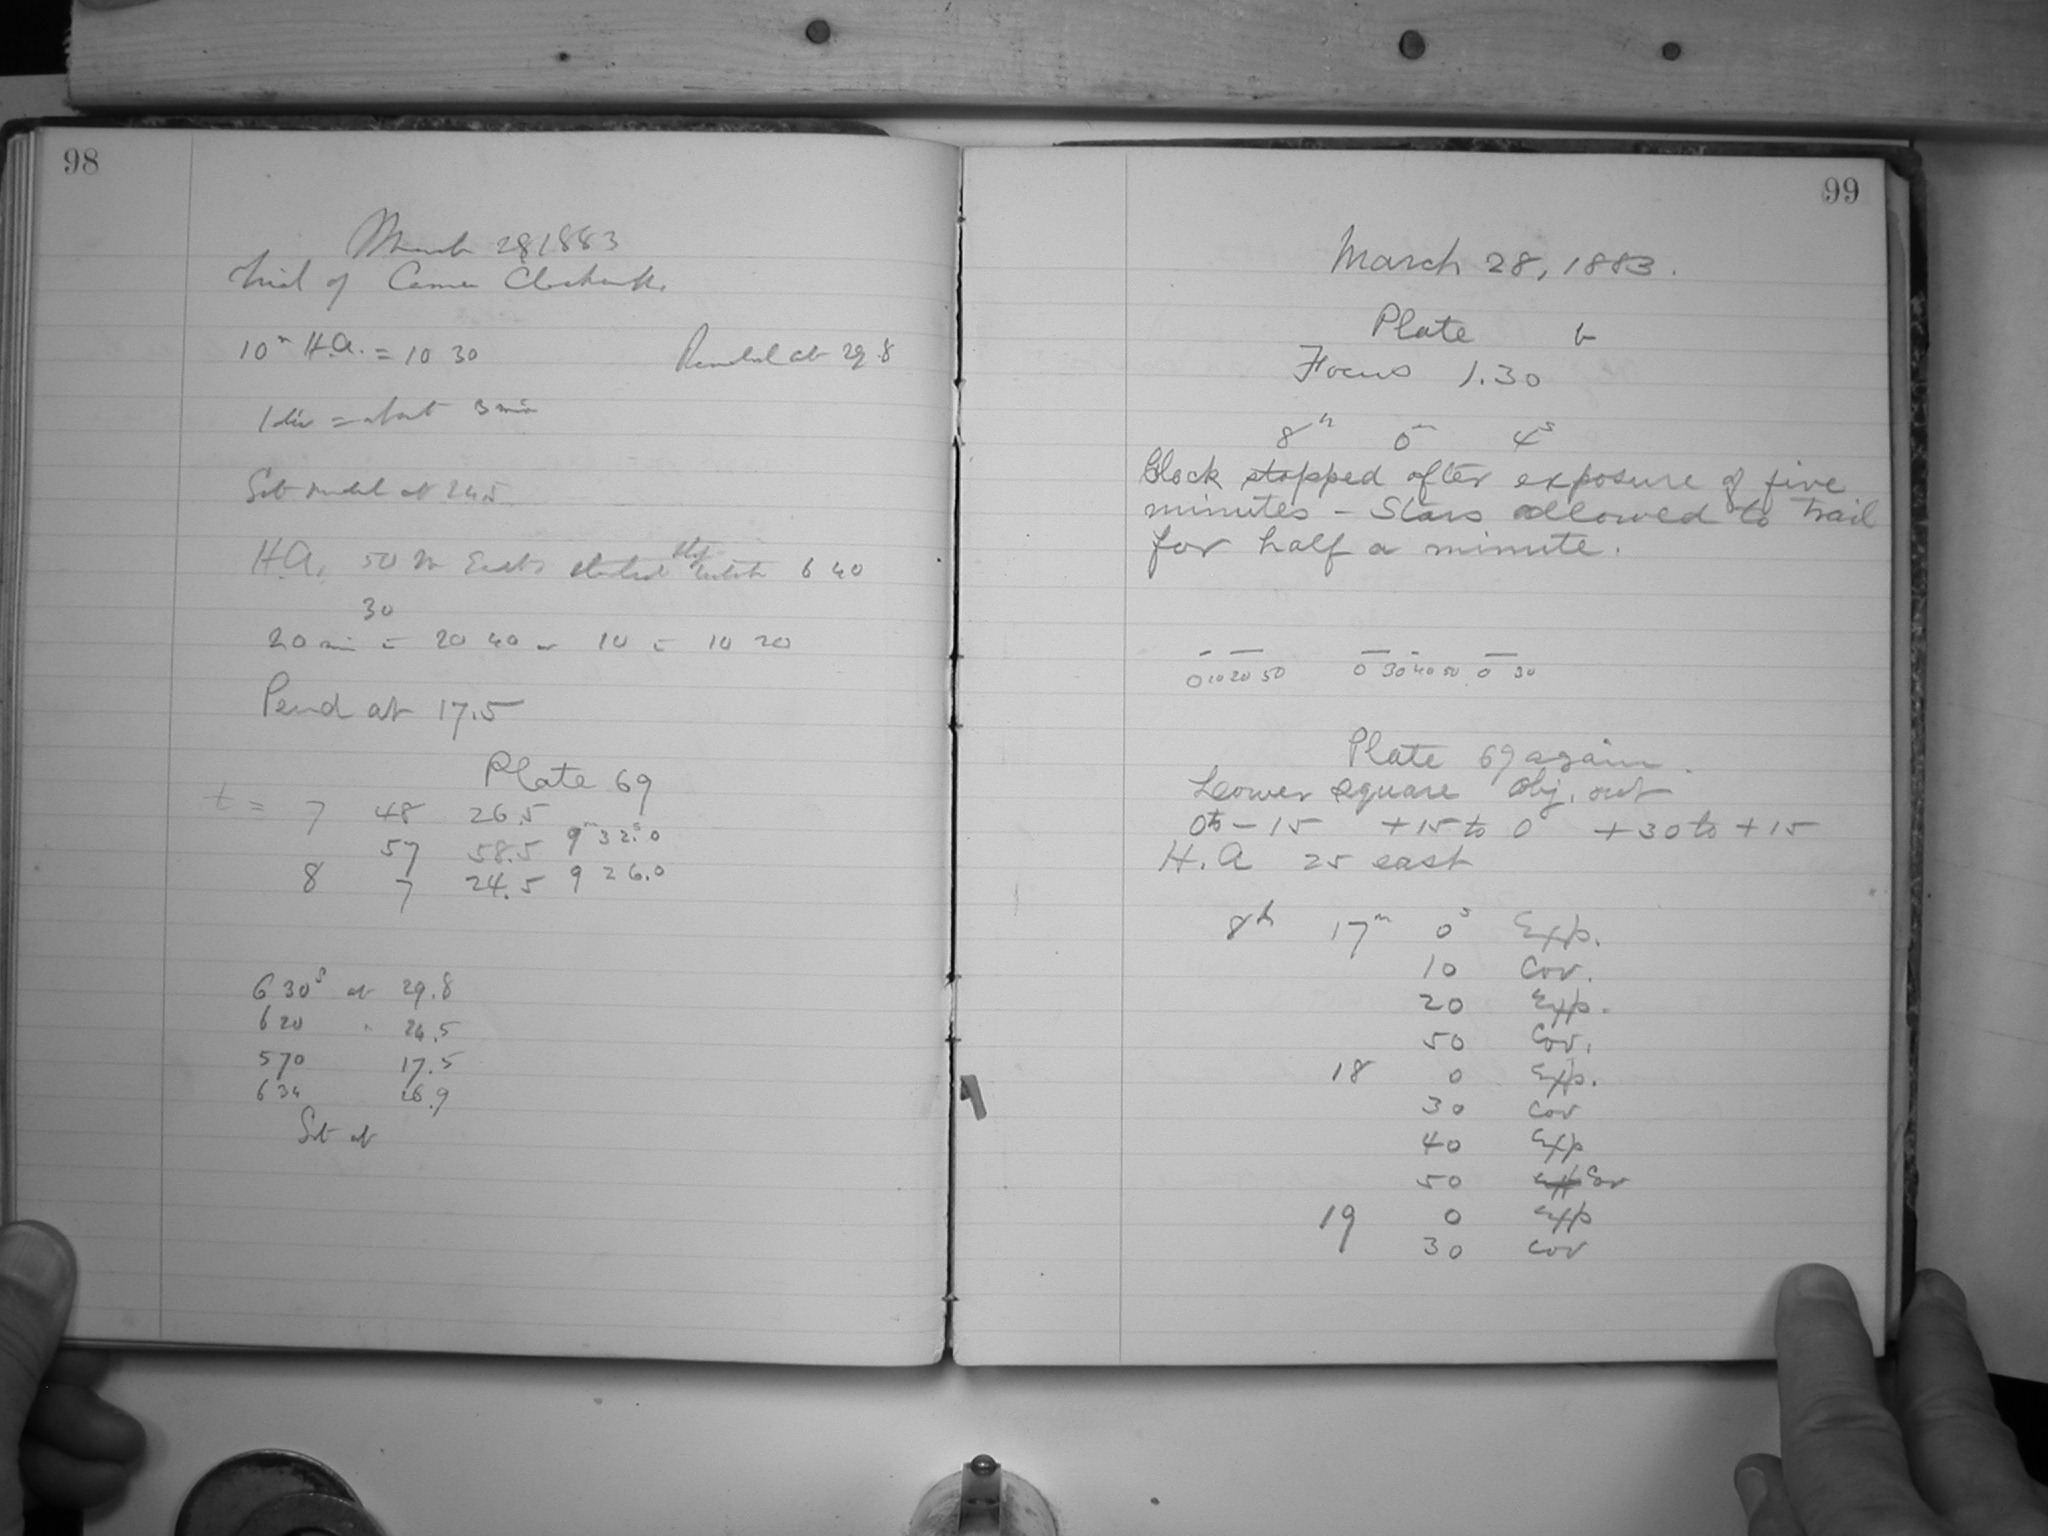 98
March 28 1883
Trial of Camera Clockwork.
10m H.A. = 10 30 Pendul at 29.8
1 div = about 3 min
Set pendul at 24.5
H.A. 50 m East started watch 6 40
30
20 min = 20 40 or 10 = 10 20
Pend at 17.5
Plate 69
t = 7 48 26.5
57 58.5 9m 32s.0
8 7 24.5 9 26.0
6 30s at 29.8
6 20 " 24.5
570 17.5
634 26.9
Set at
99
March 28, 1883.
Plate
Focus 1.30
8h 0m 4s
Clock stopped after exposure of five
minutes - Stars allowed to trail
for half a minute.
0 10 20 50 0 30 40 50 0 30
Plate 69 again.
Lower square Obj. out
0 to - 15 + 15 to 0 + 30 to + 15
H.A 25 east
8h 17m 0s Exp.
10 Cov.
20 Exp.
50 Cov.
18 0 Exp.
30 Cov
40 Exp
50 Cov
19 0 Exp
30 Cov